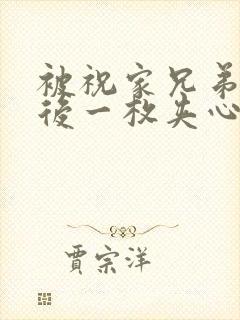 被祝家兄弟
後一枚失心
賈宗洋